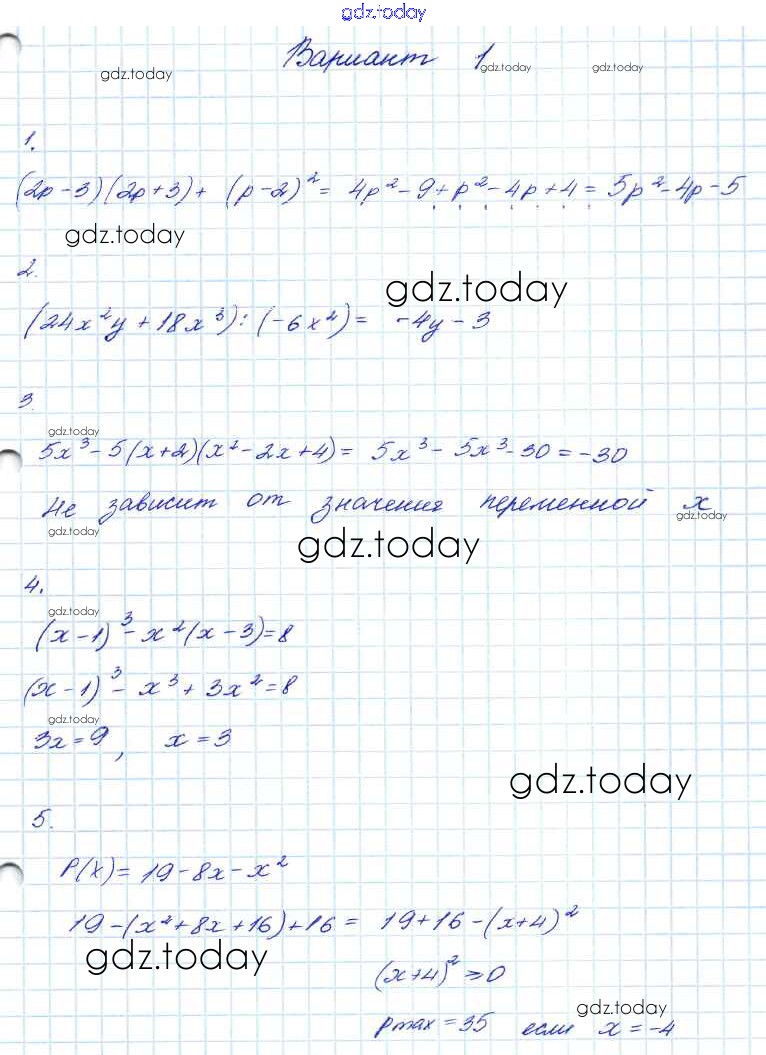 gdz.today
Вариант 1
gdz.today gdz.today gdz.today
1.
(2p-3)(2p+3)+ (p-2)²= 4p²-9+p²-4p+4= 5p²-4p-5
gdz.today
2.
gdz.today
(24x²y+18x³):(-6x²)= -4y-3
3.
gdz.today
5x³-5(x+2)(x²-2x+4)= 5x³-5x³-30=-30
Не зависит от значения переменной x
gdz.today gdz.today
gdz.today
4.
gdz.today
(x-1)³-x²(x-3)=8
(x-1)³-x³+3x²=8
gdz.today
3x=9, x=3
gdz.today
5.
P(x)=19-8x-x²
19-(x²+8x+16)+16= 19+16-(x+4)²
gdz.today
(x+4)²⩾0
gdz.today
pmax=35 если x=-4